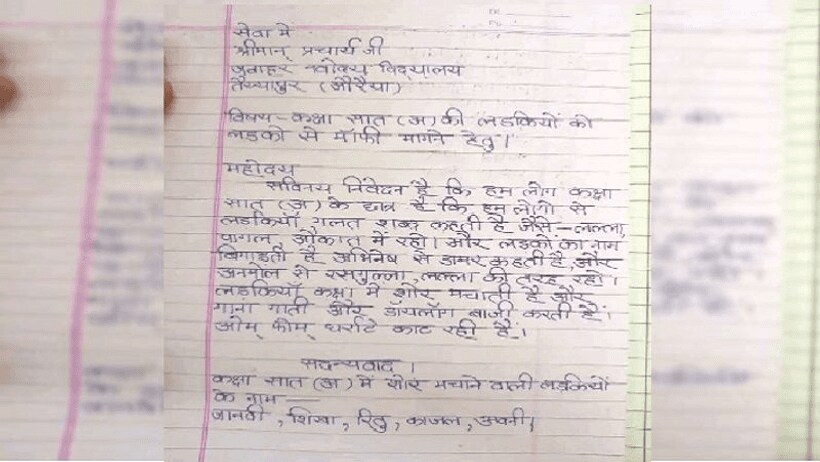 सेवा में
श्रीमान् प्रचार्य जी
जवाहर नवोदय विद्यालय
तैय्यापुर (औरैया)
विषय - कक्षा सात (अ) की लडकियों की
लडको से माँफी मागने हेतु।
महोदय
सविनय निवेदन है कि हम लोग कक्षा
सात (अ) के छात्र है कि हम लोगो से
लडकियाँ गलत शब्द कहती है जैसे - लल्ला,
पागल औकात में रहो। और लडको का नाम
बिगाडती है अभिनेष से डामर कहती है और
अनमोल से रसगुल्ला, लल्ला की तरह रहो।
लडकियाँ कक्षा में शोर मचाती है और
गाना गाती और डॉयलॉग बाजी करती हैं।
ओम् फोम् धर्राटे काट रही है।
सधन्यवाद।
कक्षा सात (अ) में शोर मचाने वाली लडकियों
के नाम —
जानवी, शिखा, रितु, काजल, अवनी।